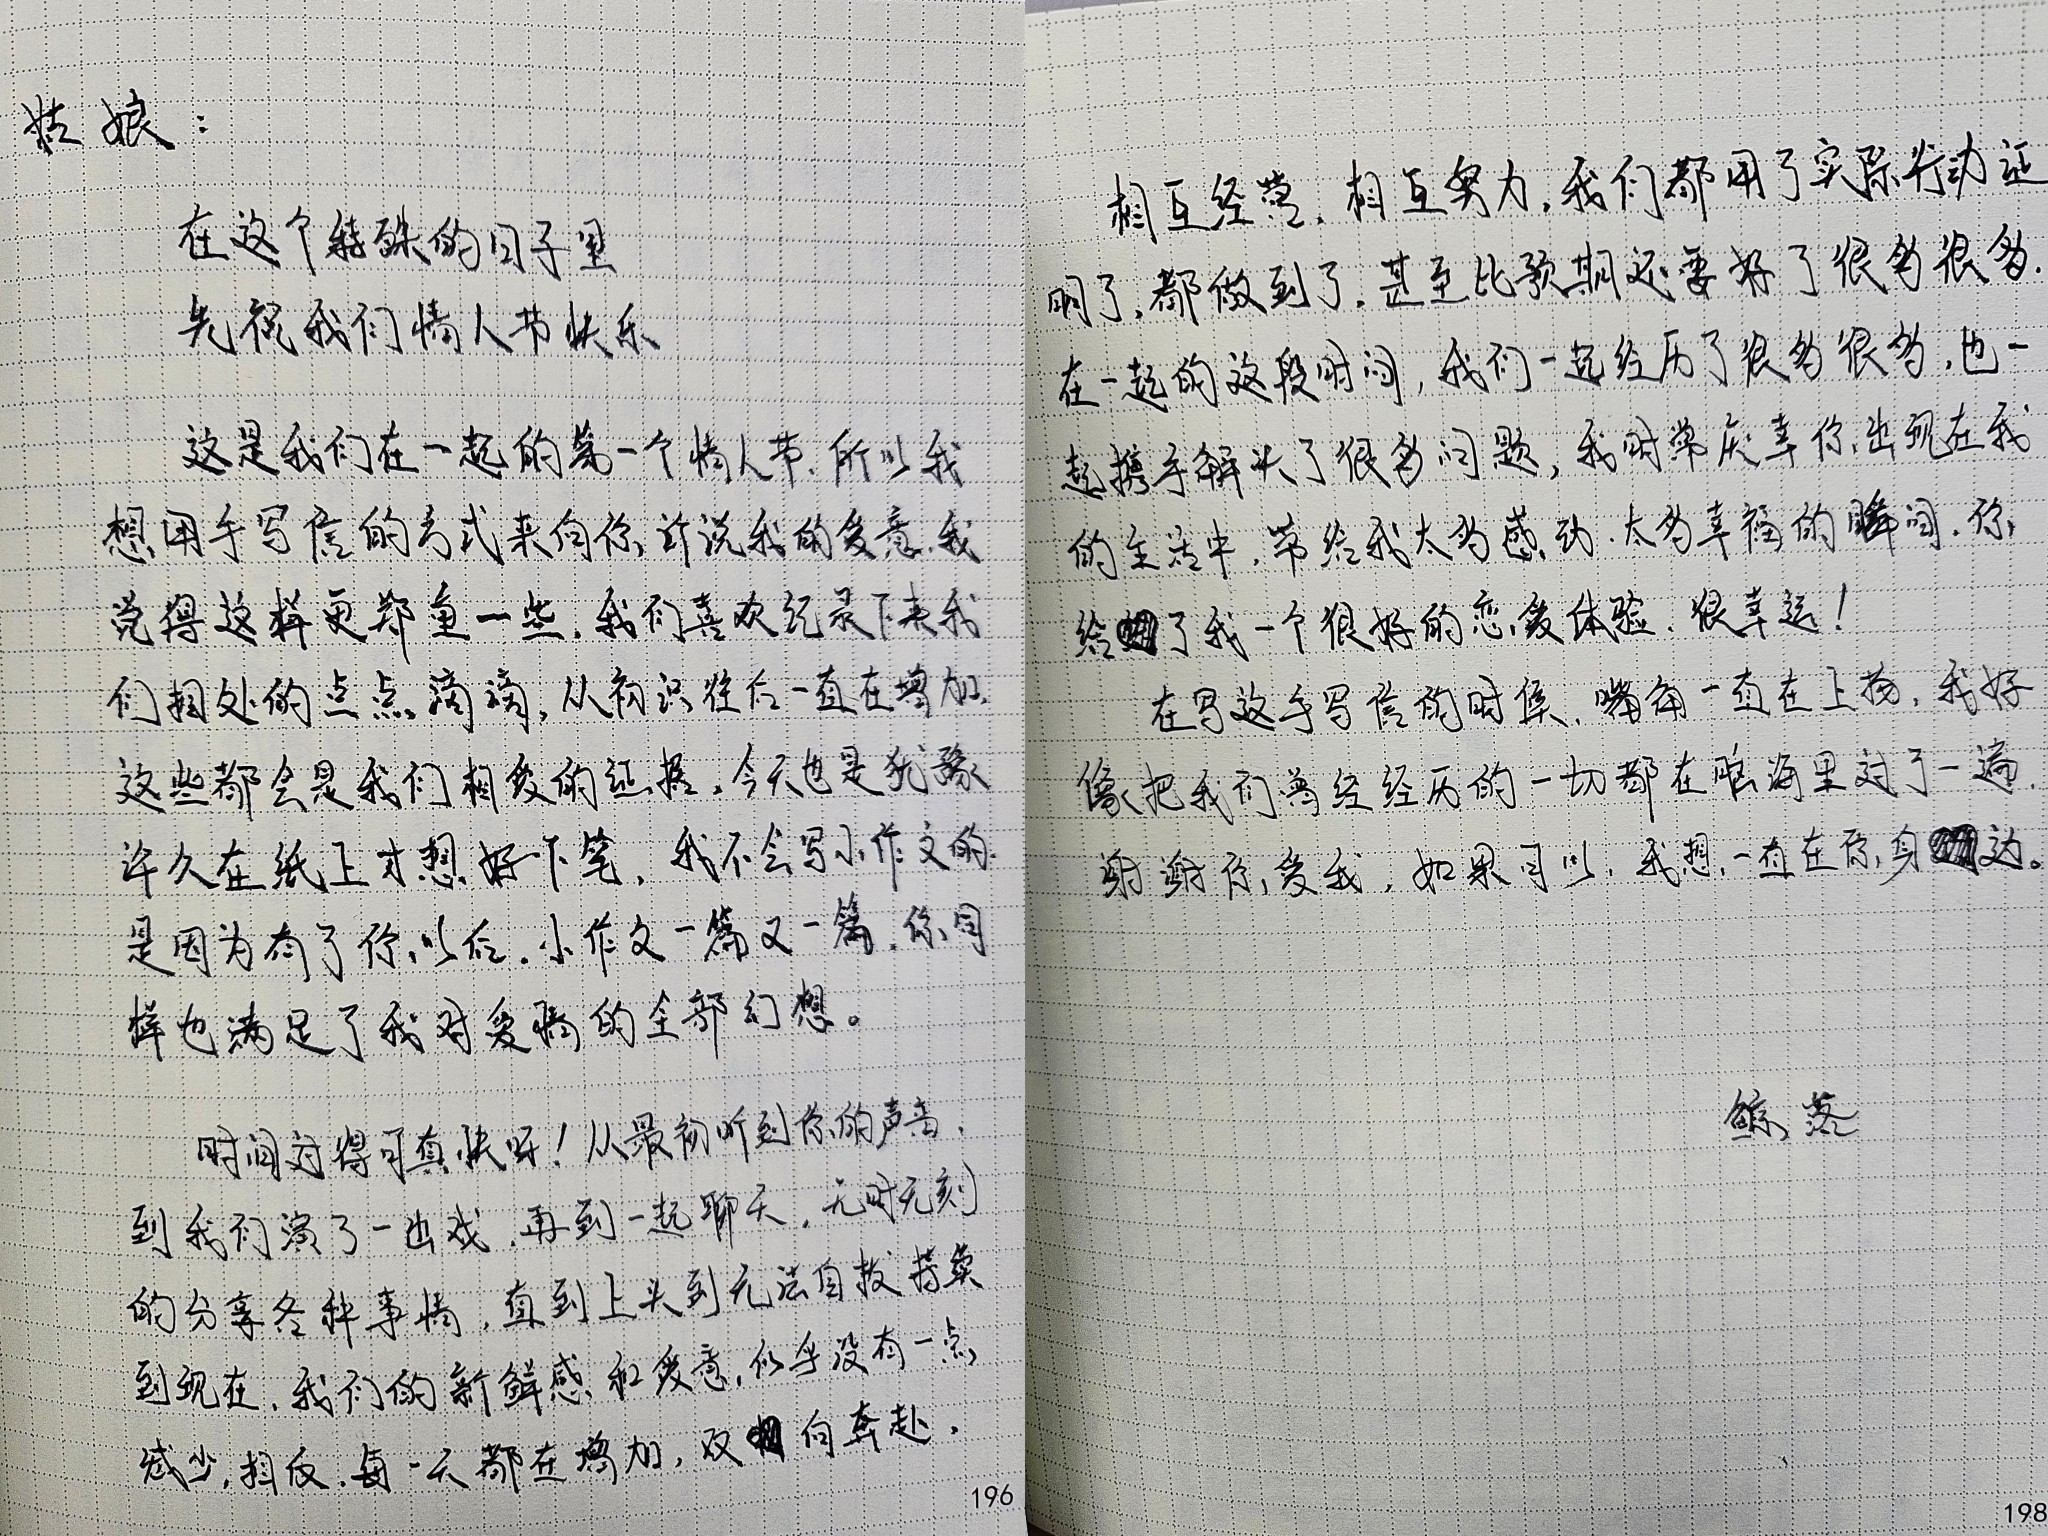 姑娘：
在这个特殊的日子里
先祝我们情人节快乐
这是我们在一起的第一个情人节，所以我
想用手写信的方式来向你诉说我的爱意，我
觉得这样更郑重一些，我们喜欢纪录下来我
们相处的点点滴滴，从初识往后一直在增加，
这些都会是我们相爱的证据。今天也是犹豫
许久在纸上才想好下笔，我不会写小作文的，
是因为有了你，以后，小作文一篇又一篇，你同
样也满足了我对爱情的全部幻想。
时间过得可真快呀！从最初听到你的声音，
到我们演了一出戏，再到一起聊天，无时无刻
的分享各种事情，直到上头到无法自拔持续
到现在，我们的新鲜感和爱意，似乎没有一点
减少，相反，每一天都在增加，双向奔赴，
196
相互经营，相互努力，我们都用了实际行动证
明了，都做到了，甚至比预期还要好了很多很多，
在一起的这段时间，我们一起经历了很多很多，也一
起携手解决了很多问题，我时常庆幸你出现在我
的生活中，带给我太多感动，太多幸福的瞬间，你
给了我一个很好的恋爱体验，很幸运！
在写这手写信的时候，嘴角一直在上扬，我好
像把我们曾经经历的一切都在脑海里过了一遍，
谢谢你爱我，如果可以，我想一直在你身边。
鲸落
198